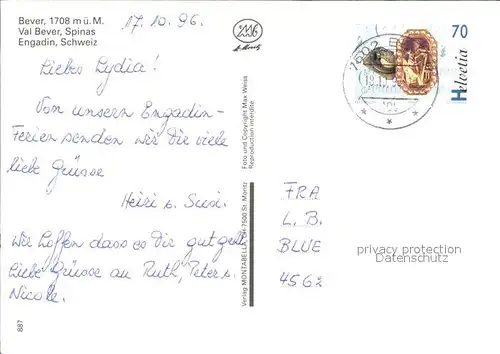 Bever, 1708 m ü. M.
Val Bever, Spinas
Engadin, Schweiz
17.10.96.
2336
St. Moritz
Liebes Lydia!
Vom unsern Engadin-
Ferien senden wir Dir viele
liebe Grüsse
Heiri u. Susi.
Wir hoffen dass es Dir gut geht
Liebe Grüsse an Ruth, Peter u.
Nicole.
887
Foto und Copyright Max Weiss
Reproduction interdite
Verlag MONTABELLA CH-7500 St. Moritz
70
Helvetia
FRA
L. B.
BLUE
4562
privacy protection
Datenschutz